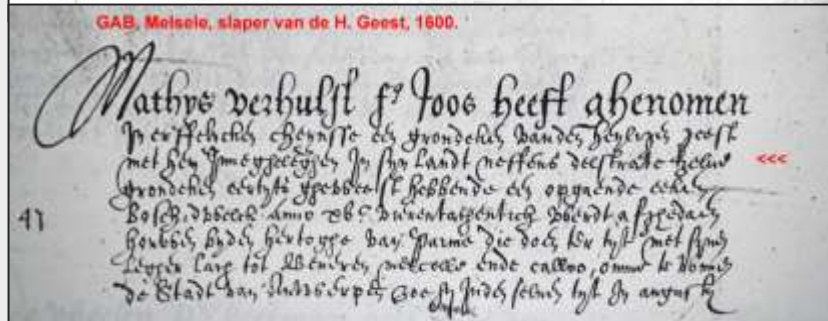 GAB, Melsele, slaper van de H. Geest, 1600.
Mathys verhulst fs Joos heeft ghenomen
In erffelicken cheynsse een grondeken vanden heylegen geest
met hem Inneghelegen In syn landt neffens destrate twelck <<<
grondeken eertyts gheweest hebbende een opgaende eeken
41 Bosch, dwelck Anno xvc vierentachtentich werdt afghedaen
houwen byden hertoghe van Parma die doen ter tyt met synen
Legher lach tot Beveren melcele ende calloo, omme te
de Stadt van Antwerpen In den selven tyt In